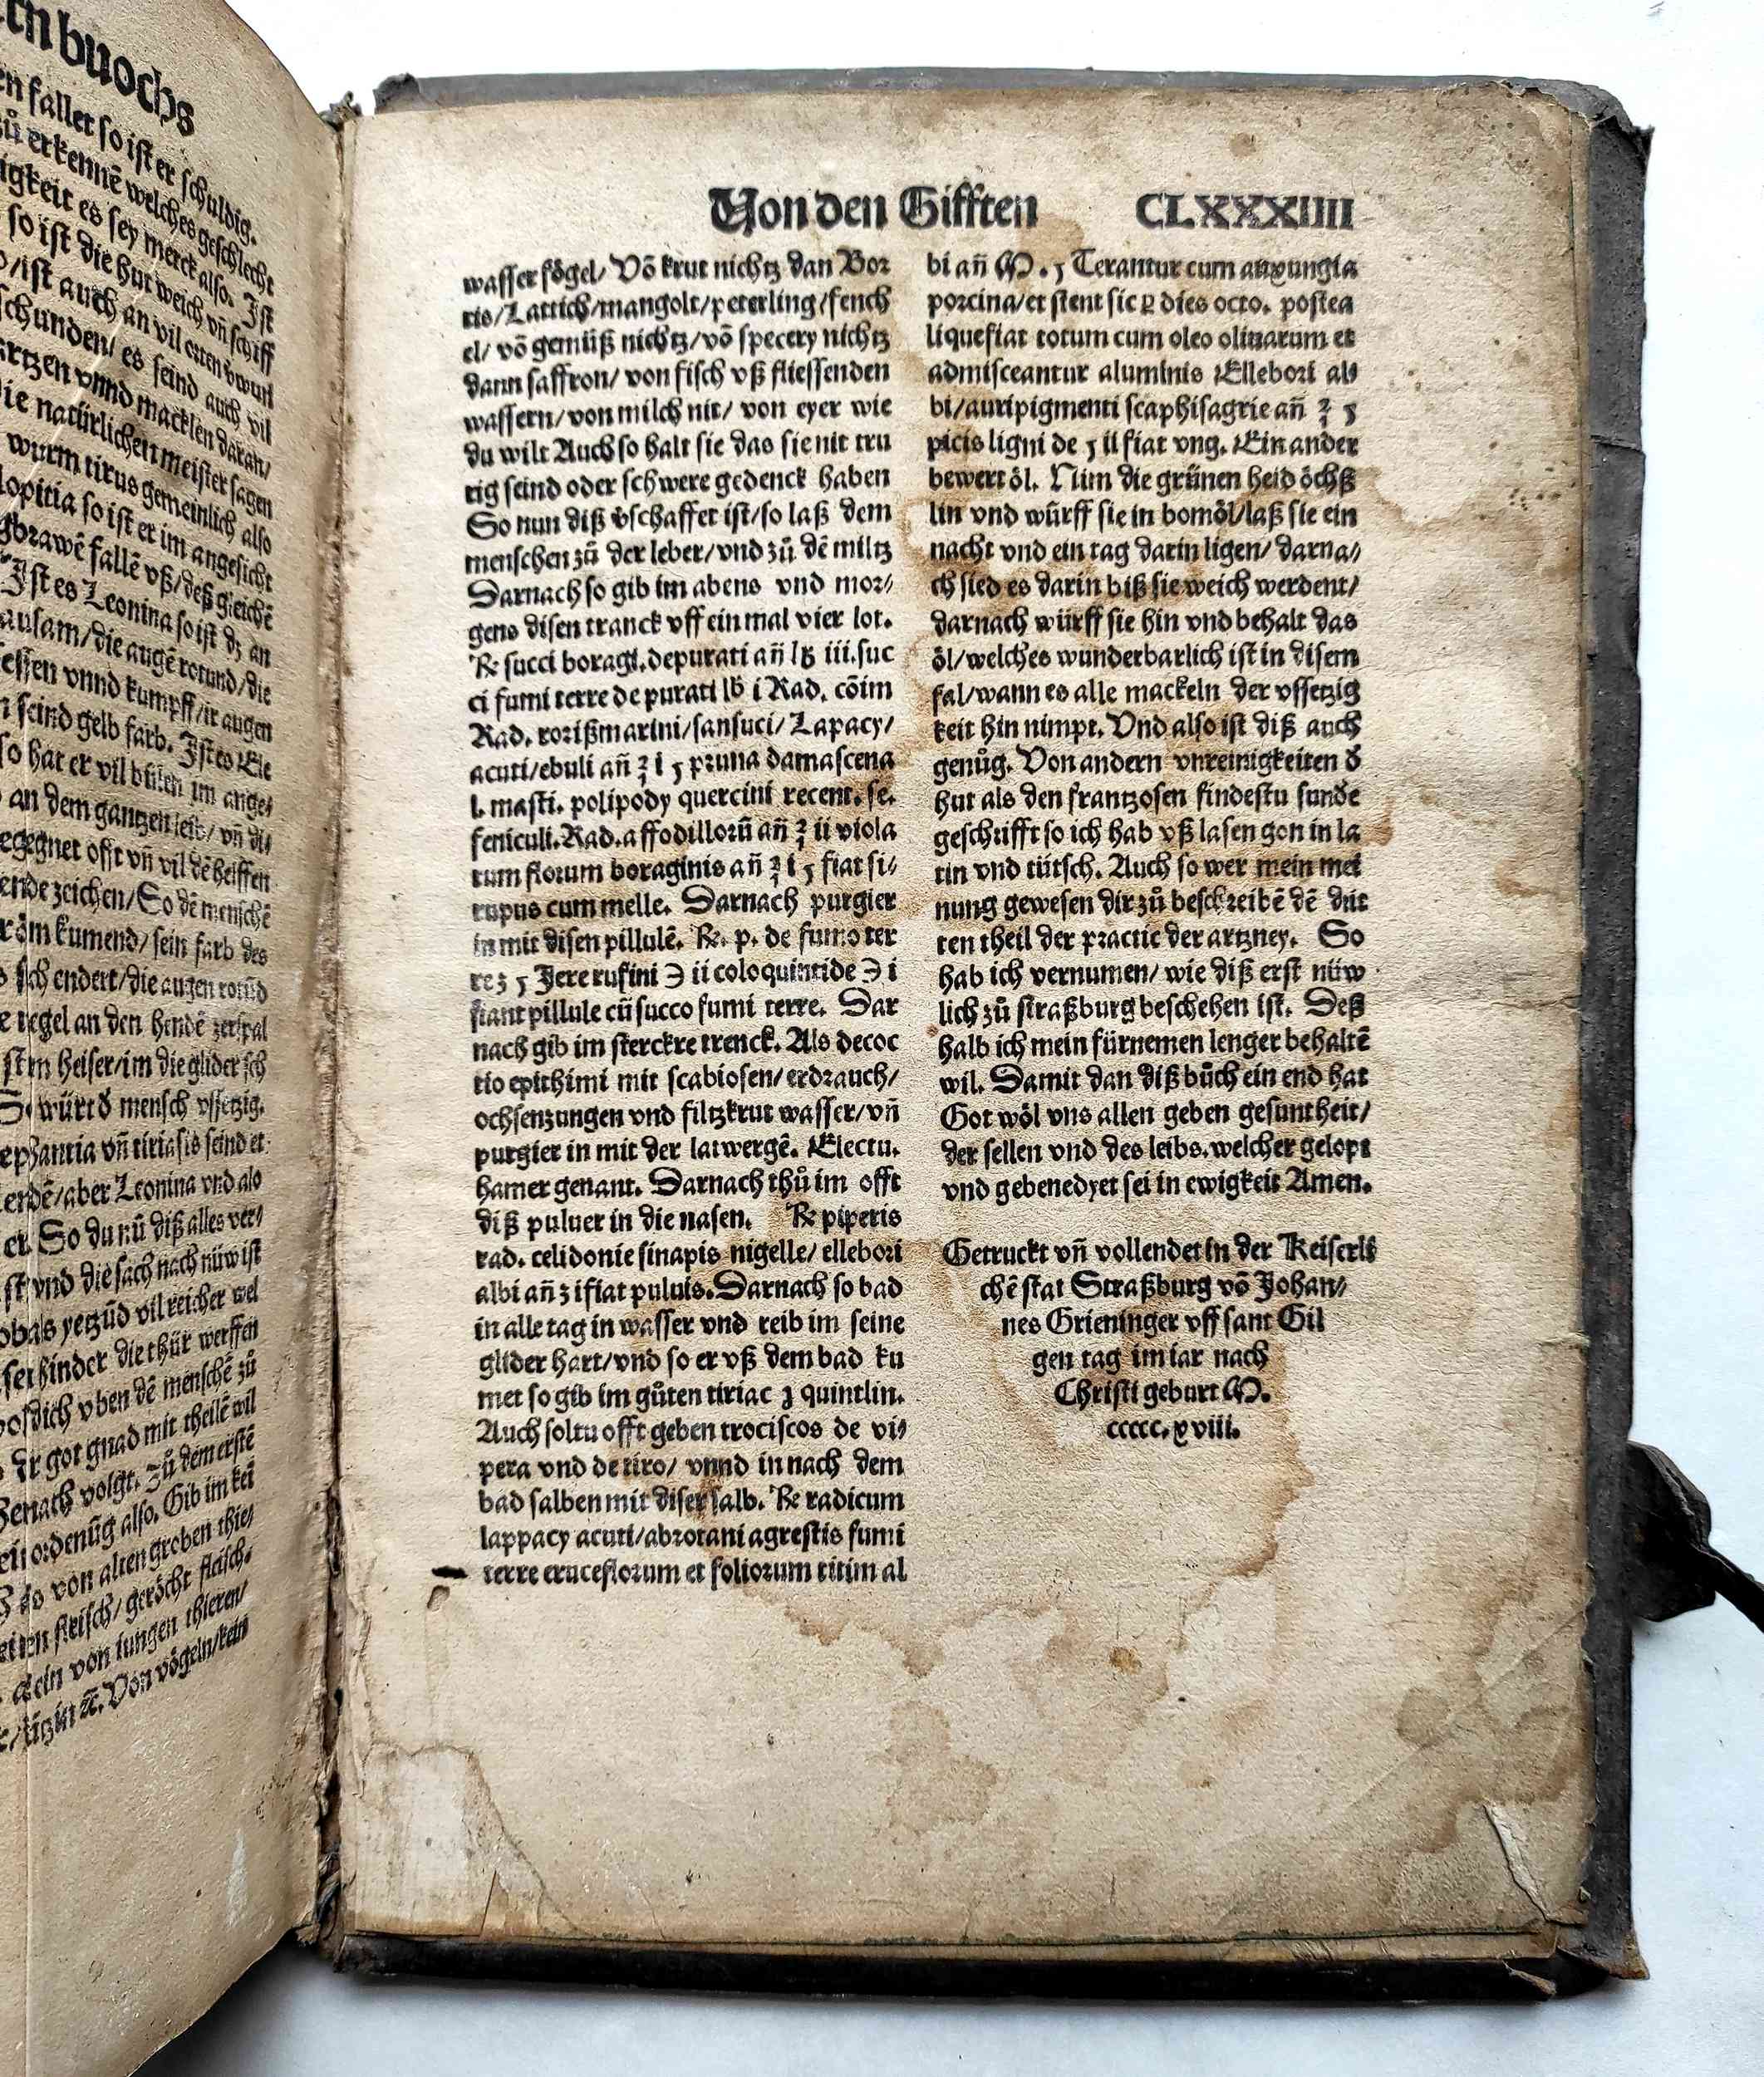 buochs
en fallet so ist er schuldig.
zů erkennē welches geschlecht
igkeit es sey merck also. Ist
so ist die hut weich vñ schiff
/ist auch an vil orten
schunden/ es seind auch vil
artzen vnnd macklen daran/
die natürlichen meister sagen
wurm tirus gemeinlich also
lopitia so ist er im angesicht
gbrawē fallē vß/deß gleichē
Ist es Leonina so ist dz an
/die augē rotund/die
vnnd kumpff/ir augen
seind gelb farb. Ist es Ele
so hat er vil im ange/
an dem gantzen leib/ vñ di/
egegnet offt vñ vil dē heissen
ende zeichen/ So dē menschē
kumend/ sein farb des
sich endert/die augen rotūd
negel an den hendē zerspal
stim heiser/im die glider sch
würt ð mensch vssetzig.
vñ tiriasis seind et
erdē/aber Leonina vnd alo
er. So du nū diß alles ver/
vnd die sach nach nüw ist
yetzūd vil reicher wel
hinder die thür werffen
vben dē menschē zů
Dr got gnad mit theilē wil
Hernach volgt. Zů dem erstē
ordenūg also. Gib im kei
von alten groben thie/
fleisch/ geröcht fleisch/
von iungen thieren/
Von vögeln/kein
Von den Gifften CLXXXIIII
wasser fögel/ Vō krut nichtz dan Bor
ris/Lattich/mangolt/peterling/fench
el/ vō gemüß nichtz/vō specery nichtz
dann saffron/ von fisch vß fliessenden
wassern/von milch nit/ von eyer wie
du wilt Auch so halt sie das sie nit tru
rig seind oder schwere gedenck haben
So nun diß vschaffet ist/so laß dem
menschen zů der leber/vnd zů dē miltz
Darnach so gib im abens vnd mor/
gens disen tranck vff ein mal vier lot.
℞ succi boragi. depurati añ lb iii.suc
ci fumi terre de purati lb i Rad. cōim
Rad. rorißmarini/sansuci/Lapacy/
acuti/ebuli añ ℥ i ʒ pruna damascena
l. masti. polipody quercini recent. se.
feniculi.Rad.affodillorū añ ℥ ii viola
rum florum boraginis añ ℥ i ʒ fiat si/
rupus cum melle. Darnach purgier
in mit disen pillulē. ℞. p. de fumo ter
re ʒ ʒ Jere rufini ℈ ii coloquintide ℈ i
fiant pillule cū succo fumi terre. Dar
nach gib im sterckre trenck. Als decoc
tio epithimi mit scabiosen/erdrauch/
ochsenzungen vnd filtzkrut wasser/vñ
purgier in mit der latwergē. Electu.
hamer genant. Darnach thů im offt
diß puluer in die nasen. ℞ piperis
rad. celidonie sinapis nigelle/ ellebori
albi añ ʒ i fiat puluis. Darnach so bad
in alle tag in wasser vnd reib im seine
glider hart/vnd so er vß dem bad ku
met so gib im gůten tiriac ʒ quintlin.
Auch soltu offt geben trociscos de vi/
pera vnd de tiro/ vnnd in nach dem
bad salben mit diser salb. ℞ radicum
lappacy acuti/abrotani agrestis fumi
terre eruce florum et foliorum titim al
bi añ M. ʒ Terantur cum auxungia
porcina/et stent sic ꝑ dies octo. postea
liquefiat totum cum oleo oliuarum et
admisceantur aluminis Ellebori al/
bi/auripigmenti scaphisagrie añ ℥ ʒ
picis ligni de ʒ ii fiat vng. Ein ander
bewert öl. Nim die grünen heid öchß
lin vnd würff sie in bomöl/laß sie ein
nacht vnd ein tag darin ligen/ darna//
ch sied es darin biß sie weich werdent/
darnach würff sie hin vnd behalt das
öl/welches wunderbarlich ist in disem
fal/wann es alle mackeln der vssetzig
keit hin nimpt. Vnd also ist diß auch
genůg. Von andern vnreinigkeiten ð
hut als den frantzosen findestu sunde
geschrifft so ich hab vß lasen gon in la
tin vnd tütsch. Auch so wer mein mei
nung gewesen dir zů beschreibē dē drit
ten theil der practic der artzney. So
hab ich vernumen/ wie diß erst nüw
lich zů straßburg beschehen ist. Deß
halb ich mein fürnemen lenger behaltē
wil. Damit dan diß bůch ein end hat
Got wöl vns allen geben gesuntheit/
der sellen vnd des leibs.welcher gelopt
vnd gebenedyet sei in ewigkeit Amen.
Getruckt vñ vollendet in der Keiserli
chē stat Straßburg vō Johan/
nes Grieninger vff sant Gil
gen tag im iar nach
Christi geburt M.
ccccc.xviii.